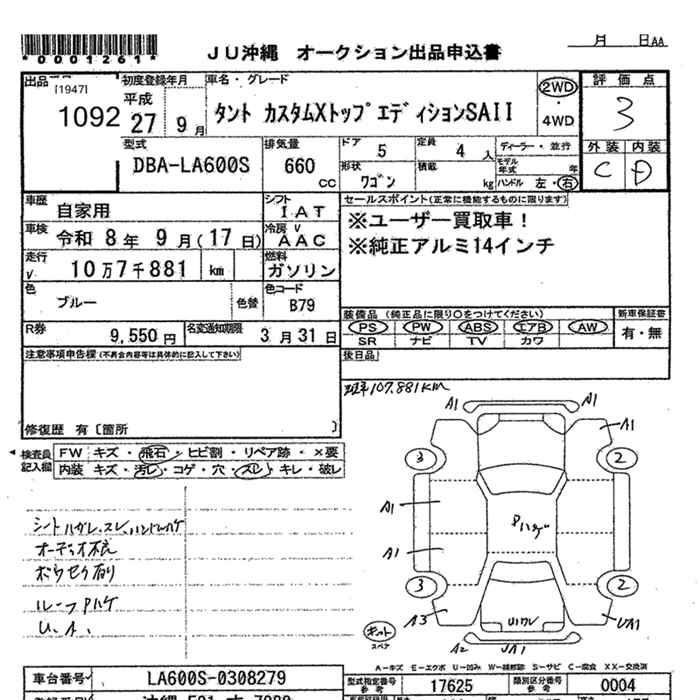 *0001261*
JU沖縄 オークション出品申込書
月 日AA
出品 [1947] 1092
初度登録年月 平成 27 9月
車名・グレード タント カスタムXトップエディションSAII
2WD ・ 4WD
評価点 3
外装 内装
C D
型式 DBA-LA600S
排気量 660 CC
ドア 5
定員 4 人
形状 ワゴン
積載 kg
ディーラー・並行
モデル年式 年
ハンドル 左・右
車歴 自家用
シフト IAT
車検 令和 8年 9月(17日)
冷房 AAC
走行 10万7千881 km
燃料 ガソリン
色 ブルー 色替
色コード B79
R券 9,550円
名変通知期限 3月31日
セールスポイント(正常に機能するものに限ります)
※ユーザー買取車!
※純正アルミ14インチ
装備品 (純正品に限り○をつけてください)
新車保証書
PS PW ABS エアB AW
有・無
SR ナビ TV カワ
後日品
注意事項申告欄(不具合内容等は具体的に記入して下さい)
修復歴 有〔箇所 〕
107,881KM
検査員記入欄
FW キズ・飛石・ヒビ割・リペア跡・×要
内装 キズ・汚レ・コゲ・穴・スレ・キレ・破レ
シートハガレ、スレ、ハンドルハゲ
オーディオ不良
ホウセツ有り
ルーフPハゲ
U.A.
A1 A1
A1
3 2
A1
Pハゲ
A1
3 2
A3
UA1
A2 UA1
スペア
A-キズ E-エクボ U-凹ミ W-補修跡 S-サビ C-腐食 XX-交換済
車台番号 LA600S-0308279
型式指定番号 参考 17625
類別区分番号 参考 0004